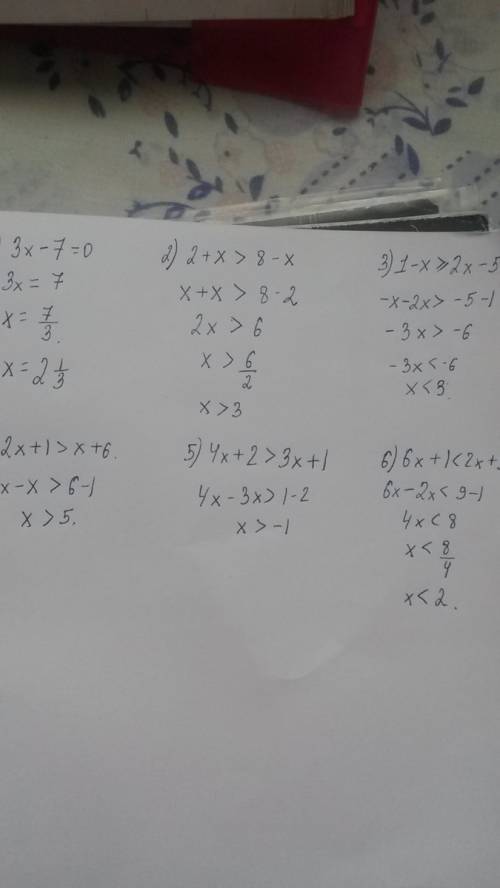 3x-7=0
3x=7
x=7/3.
x=2 1/3
2) 2+x>8-x
x+x>8-2
2x>6
x>6/2
x>3
3) 1-x⩾2x-5
-x-2x>-5-1
-3x>-6
-3x<-6
x<3.
2x+1>x+6.
x-x>6-1
x>5.
5) 4x+2>3x+1
4x-3x>1-2
x>-1
6) 6x+1<2x+
6x-2x<9-1
4x<8
x<8/4
x<2.